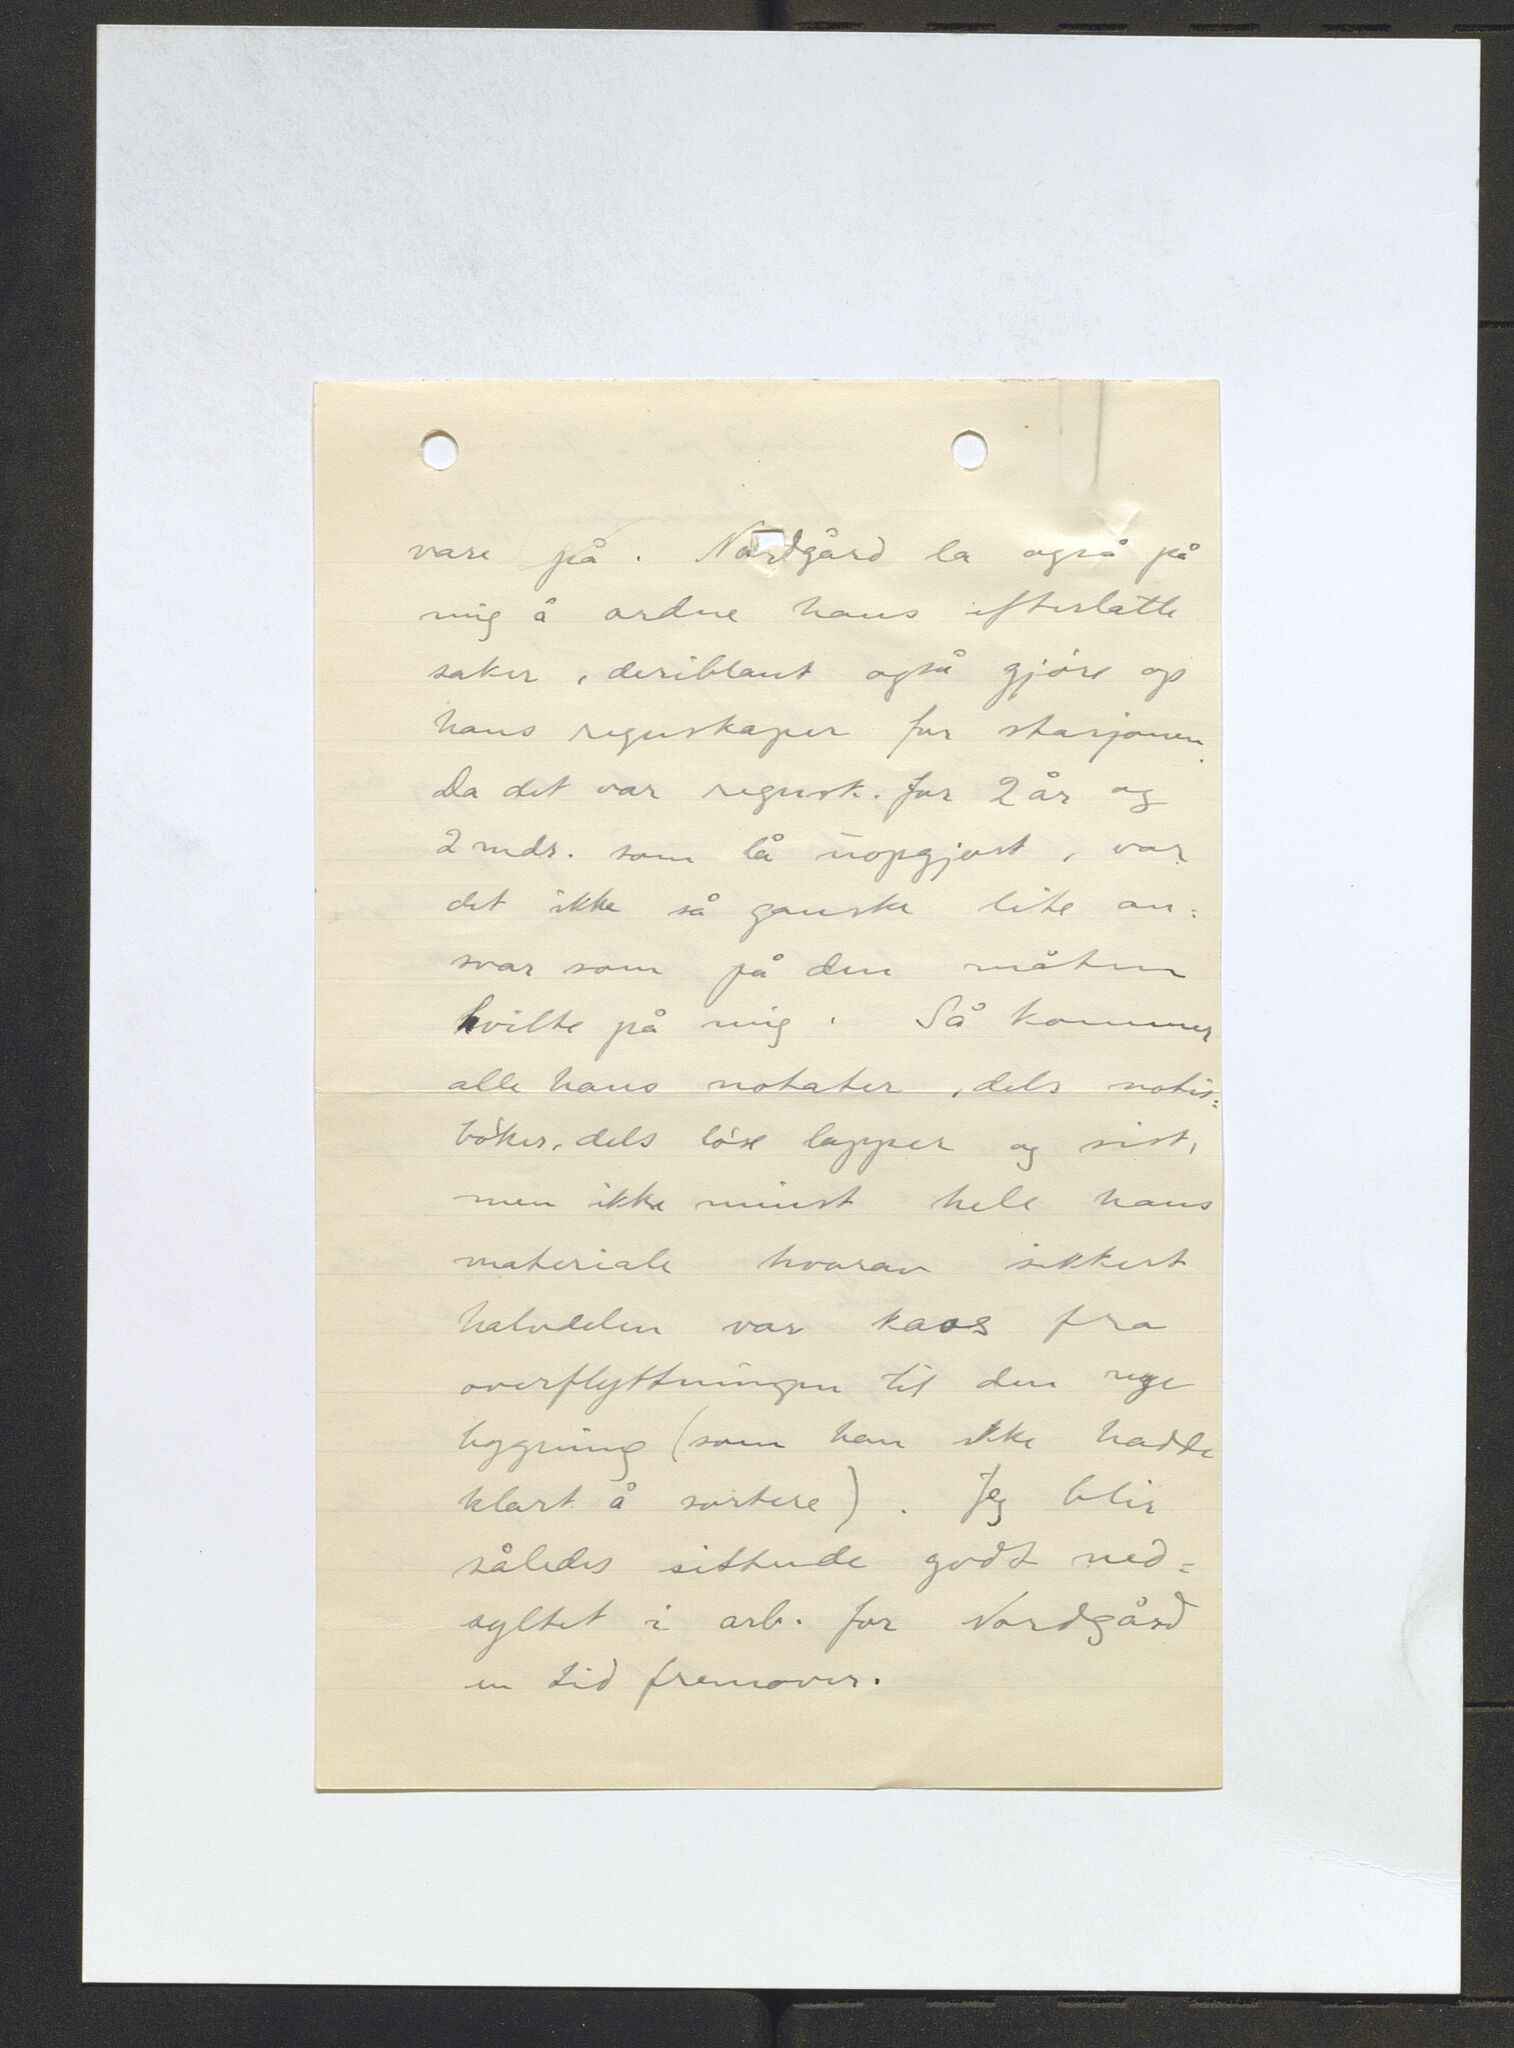 vare på. Nordgård la også på
mig å ordne hans efterlatte
saker, deriblant også gjøre op
hans regnskaper for stasjonen.
Da det var regnsk. for 2 år og
2 mdr. som lå uopgjort, var
det ikke så ganske lite an=
svar som på den måten
hvilte på mig. Så kommer
alle hans notater, dels notis=
bøker, dels løse lapper og sist,
men ikke minst hele hans
materiale hvorav sikkert
halvdelen var kaos fra
overflyttningen til den nye
bygning (som han ikke hadde
klart å sortere). Jeg blir
således sittende godt ned=
syltet i arb. for Nordgård
en tid fremover.